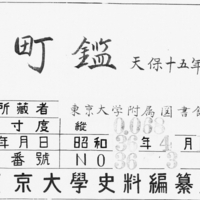 町鑑 天保十五年
所蔵者 東京大学附属図書館
寸度 縦 0,088
年月日 昭和36年4月
番號 NO 36
京大學史料編纂